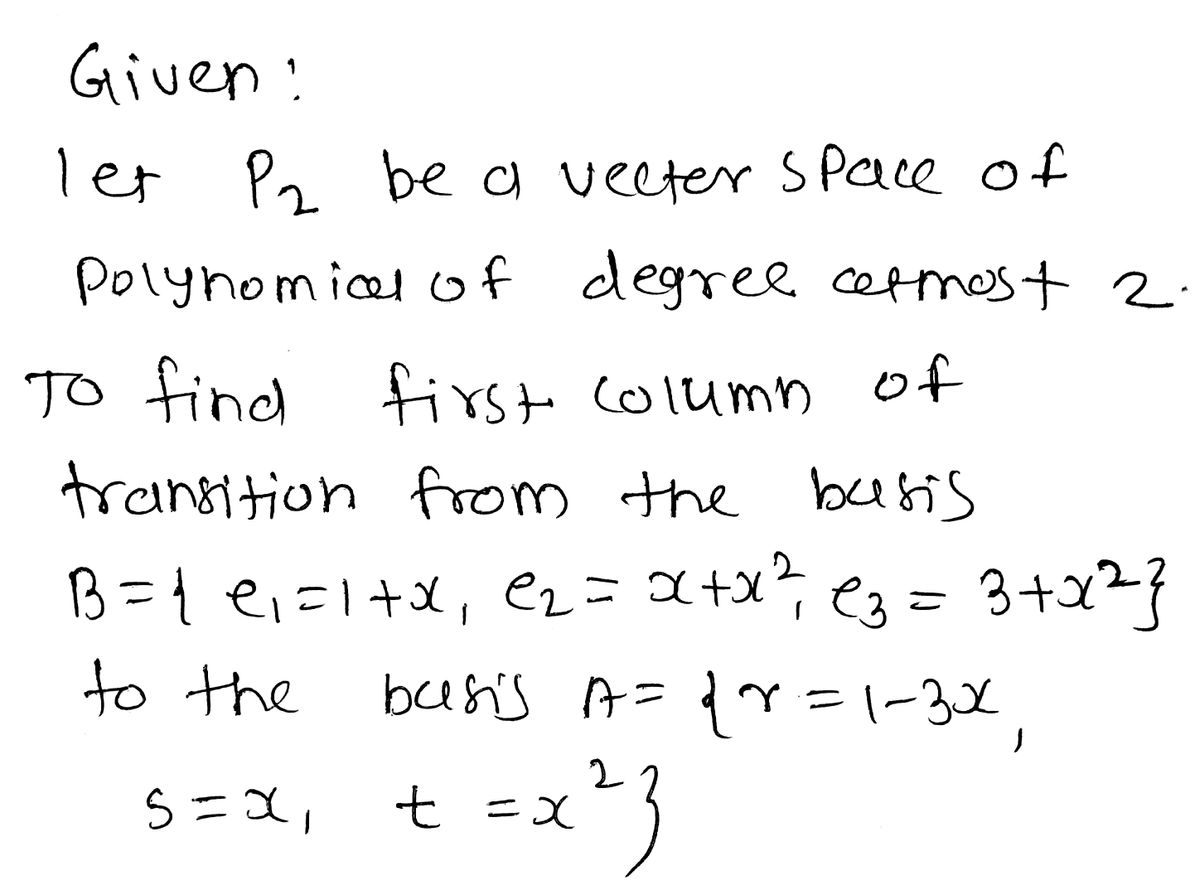 Given:
let P₂ be a vector space of
Polynomial of degree atmost 2.
To find first column of
transition from the basis
B = { e₁ = 1+x, e₂ = x+x², e₃ = 3+x² }
to the basis A = { r = 1-3x,
s = x, t = x² }